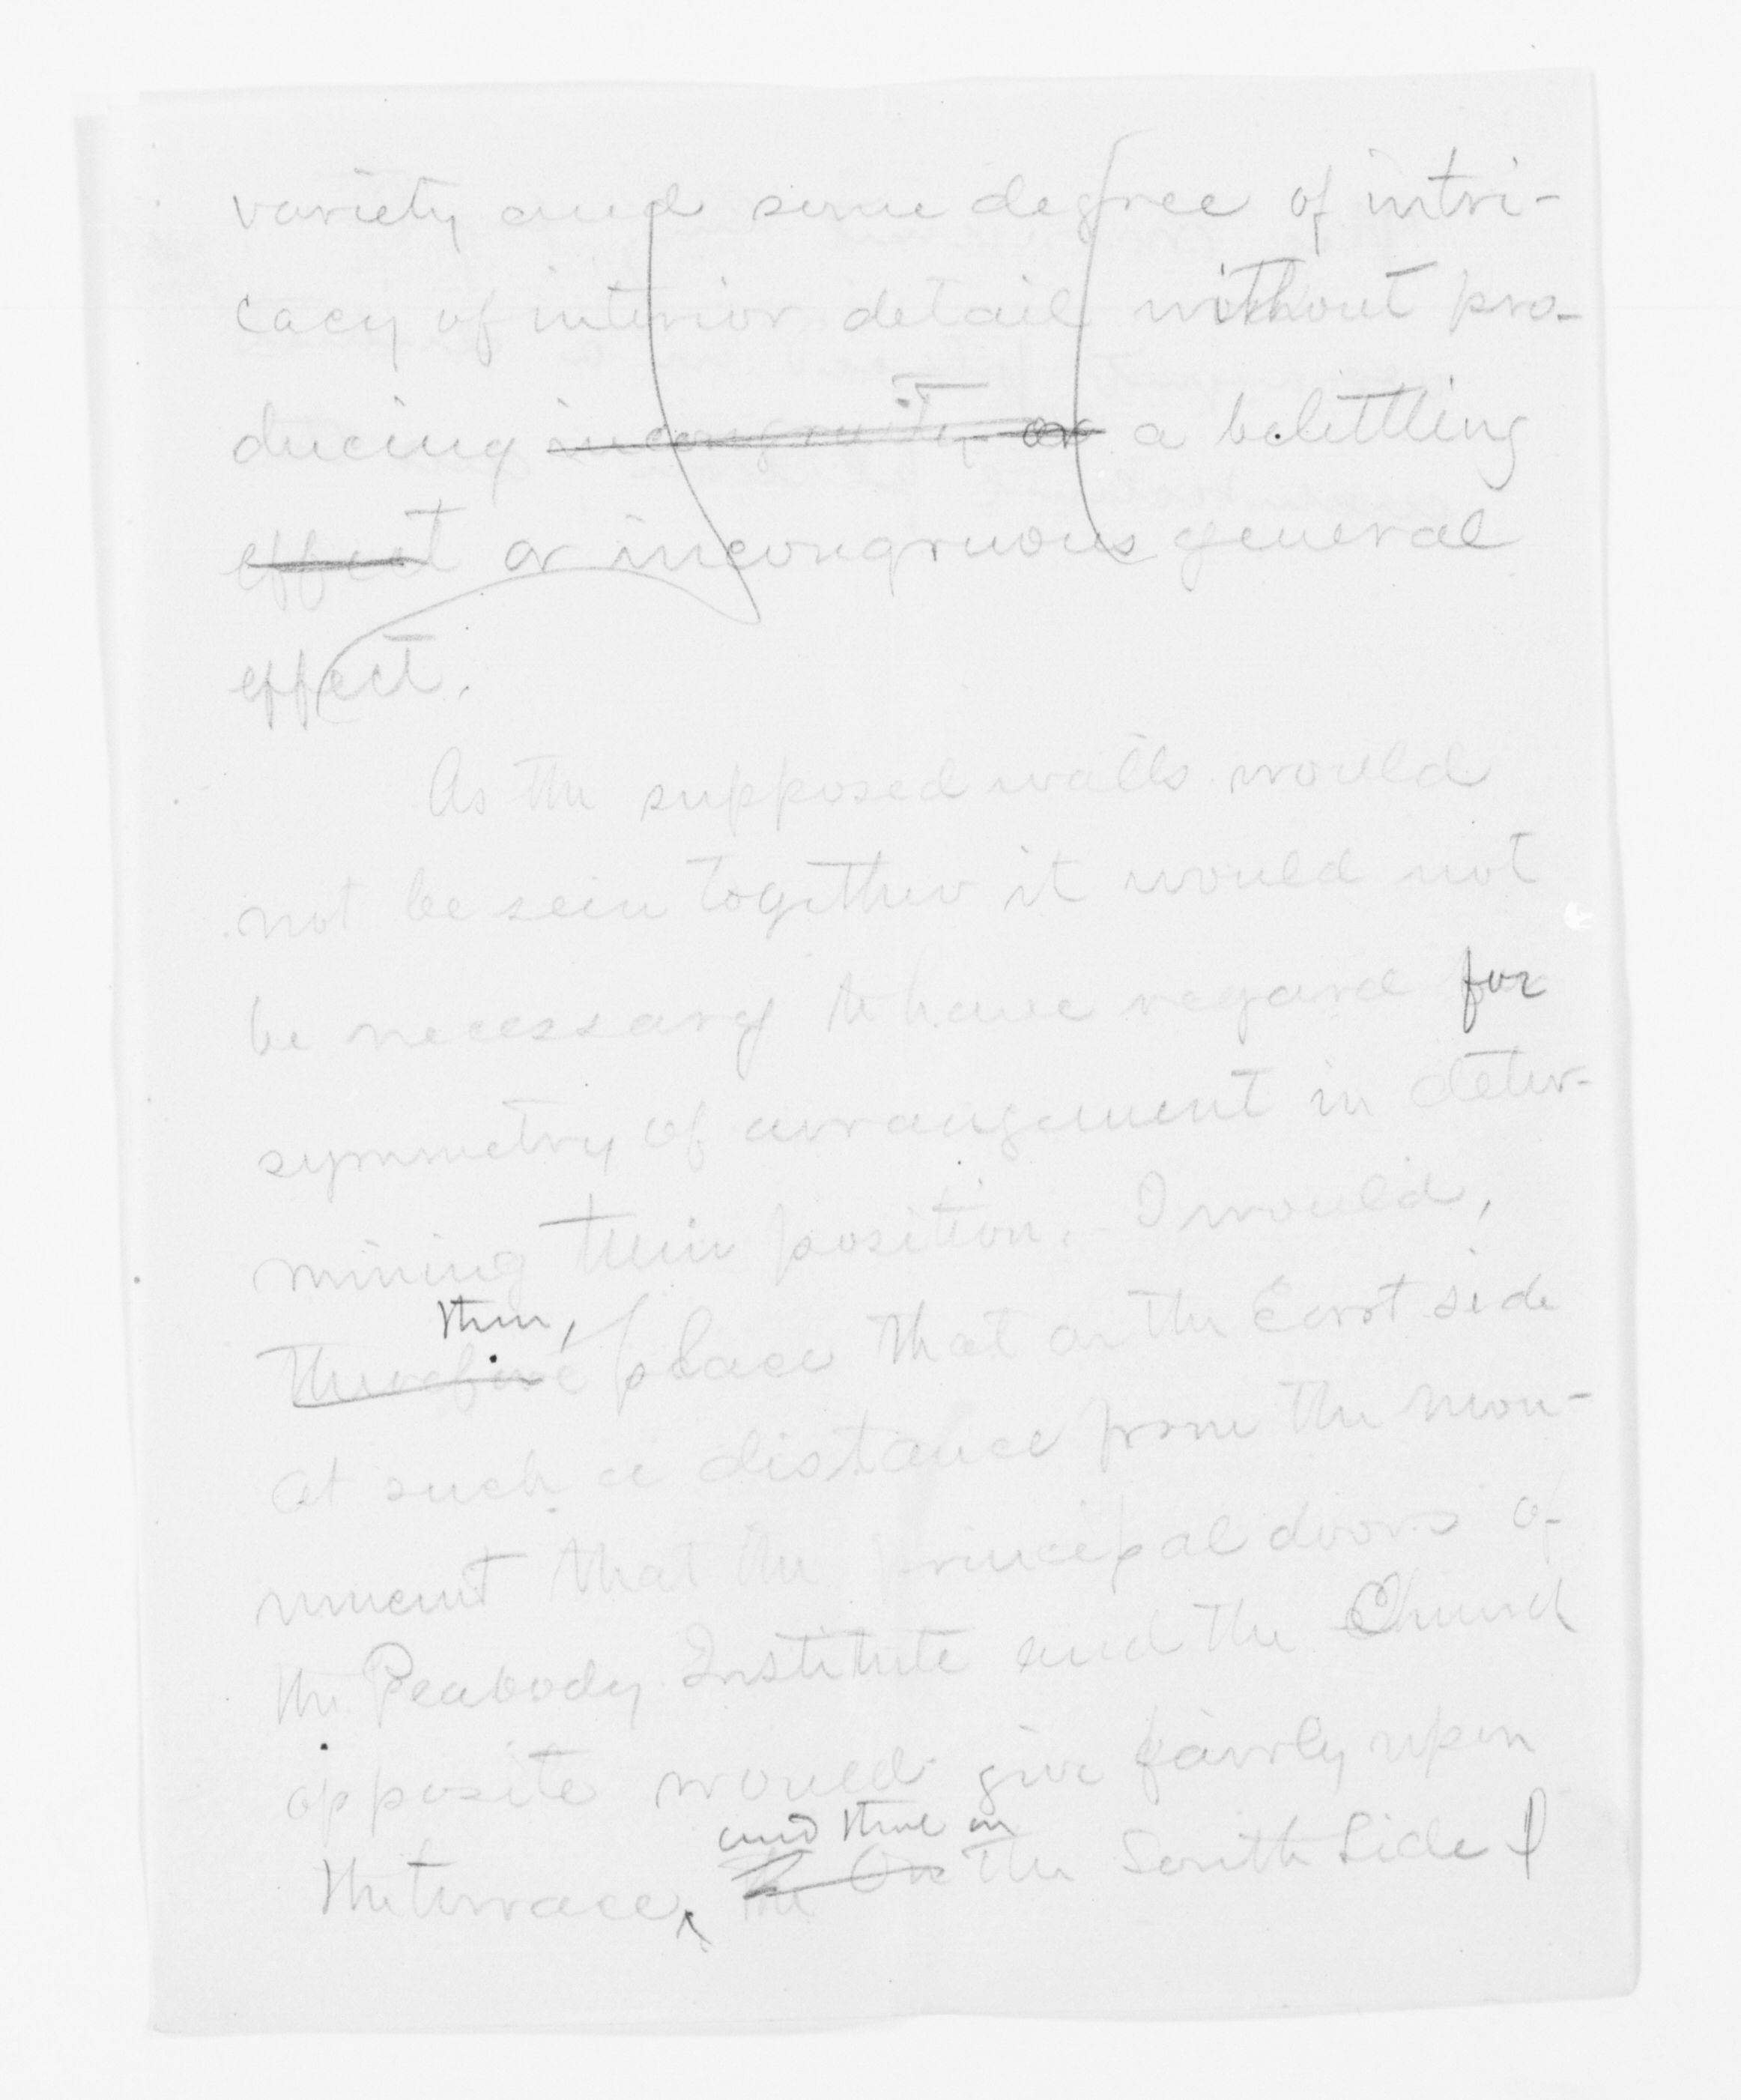 variety and some degree of intri-
cacy of interior detail without pro-
ducing incongruity or a belittling
effect or incongruous general
effect.
As the supposed walls would
not be seen together it would not
be necessary to have regard for
symmetry of arrangement in deter-
mining their position. I would,
then,
therefore place that on the East side
at such a distance from the mon-
ument that the principal doors of
the Peabody Institute and the Church
opposite would give fairly upon
and that on
the terrace, the On the South Side I